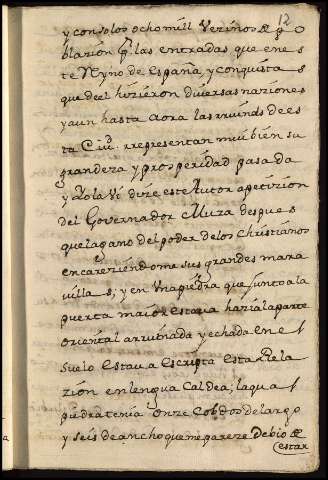 12
y con solos ocho mill Vezinos de po
blazion q̃ las entradas que en es
te Reyno de España, y conquista
que de el hizieron diversas naziones
y aun hasta aora las ruinas de es
ta Ciu.d rrepresentan mui bien su
grandeza y prosperidad pasada
y Yo la Vi dize este Autor a petizion
del Governador Muza despues
que la gano del poder de los Christianos
encareziendome sus grandes mara
villas, y en Una piedra que junto a la
puerta maior estaua hazia la parte
oriental arruinada y echada en el
suelo Estaua Escripta esta Rela
zion en lengua Caldea, la qual
piedra tenia onze Cobdos de largo
y seis de ancho que me pareze debio de
estar